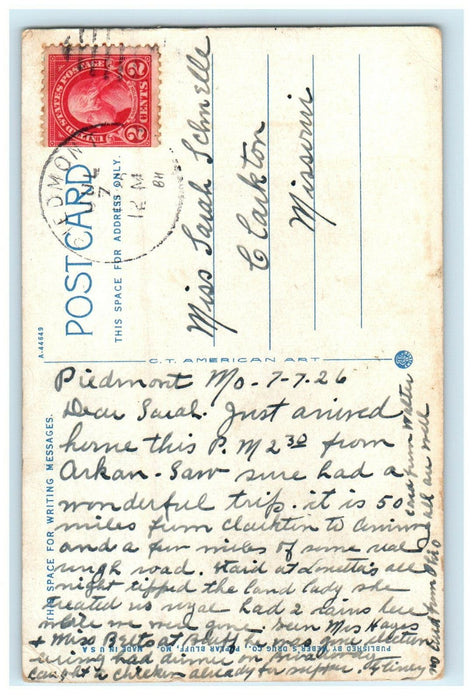 UNITED STATES POSTAGE
2 CENTS 2
PIEDMONT
JUL
7
12 M
POST CARD
THIS SPACE FOR ADDRESS ONLY.
Miss Sarah Schnelle
Clarkton
Missouri
A-44649
C.T. AMERICAN ART
THIS SPACE FOR WRITING MESSAGES.
Piedmont Mo-7-7-26
Dear Sarah. Just arrived
home this P.M 2 30 from
Arkan-Saw sure had a
wonderful trip. it is 50
miles from Clarkton to
and a few miles of some real
rough road. Staid at all
night tipped the land lady she
treated us royal had 2 rains here
while we were gone. seen Mrs Hayes
+ Miss Betts at Bluff he was gone
had dinner on
caught 2 chicken already for supper.
card from Walter
all are well
no card from Ohio
PUBLISHED BY REBER'S DRUG CO., POPLAR BLUFF, MO. MADE IN U.S.A.